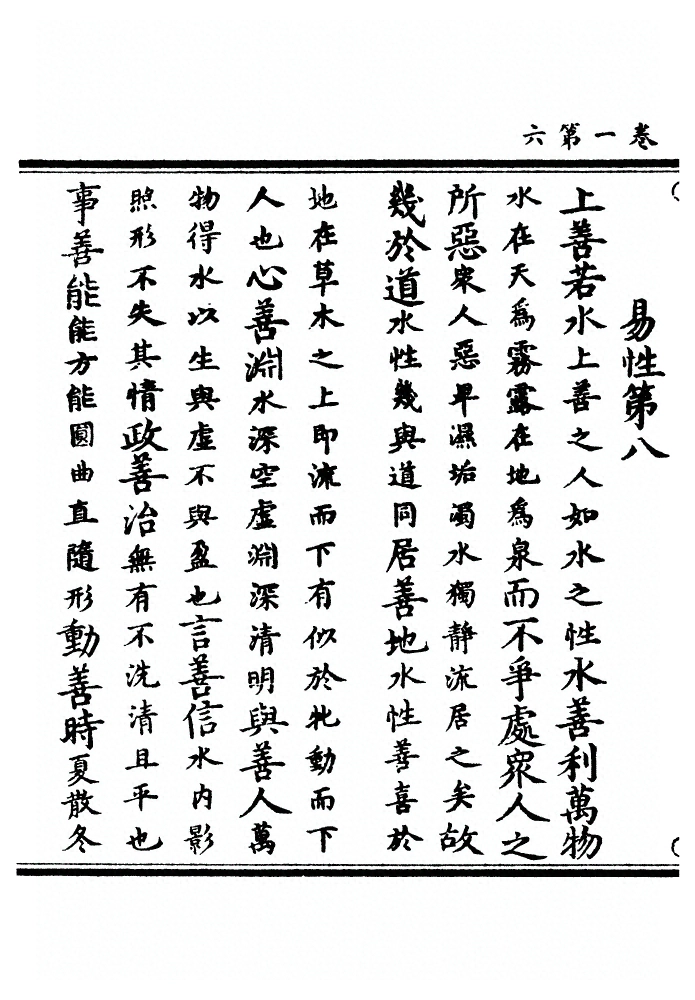 卷一第六
易性第八
上善若水上善之人如水之性水善利萬物
水在天為霧露在地為泉而不爭處眾人之
所惡眾人惡卑濕垢濁水獨靜流居之矣故
幾於道水性幾與道同居善地水性善喜於
地在草木之上即流而下有似於牝動而下
人也心善淵水深空虛淵深清明與善人萬
物得水以生與虛不與盈也言善信水內影
照形不失其情政善治無有不洗清且平也
事善能能方能圓曲直隨形動善時夏散冬